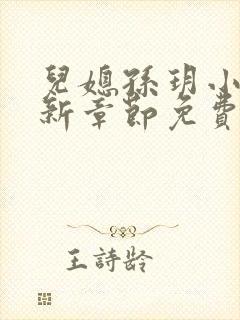 兒媳孫玥小
新章節免費
王詩齡